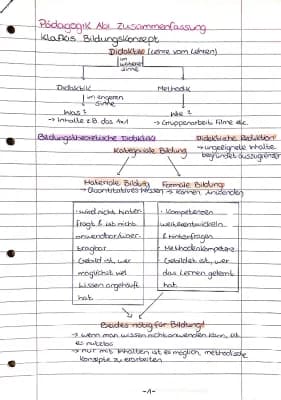 Pädagogik Abi Zusammenfassung
Klafkis Bildungskonzept
Didaktik (Lehre vom Lehren)
im weiteren Sinne
Didaktik Methodik
im engeren Sinne
Was? Wie?
→ Inhalte z.B. das → Gruppenarbeit, Filme etc.
Bildungstheoretische Didaktik Didaktische Reduktion:
→ ungeeignete Inhalte
Kategoriale Bildung begründet auszugrenzen
Materiale Bildung Formale Bildung
→ Quantitatives Wissen → Können, Anwenden
· wird nicht hinter-
fragt & ist nicht
anwendbar/über-
tragbar
· Gebildet ist, wer
möglichst viel
Wissen angehäuft
hat
· Kompetenzen
weiterentwickeln
& hinterfragen
· Methodenkompetenz
· Gebildet ist, wer
das Lernen gelernt
hat
Beides nötig für Bildung!
→ wenn man wissen nicht anwenden kann, ist
es nutzlos
→ nur mit Inhalten ist es möglich, methodische
Konzepte zu erarbeiten
-1-